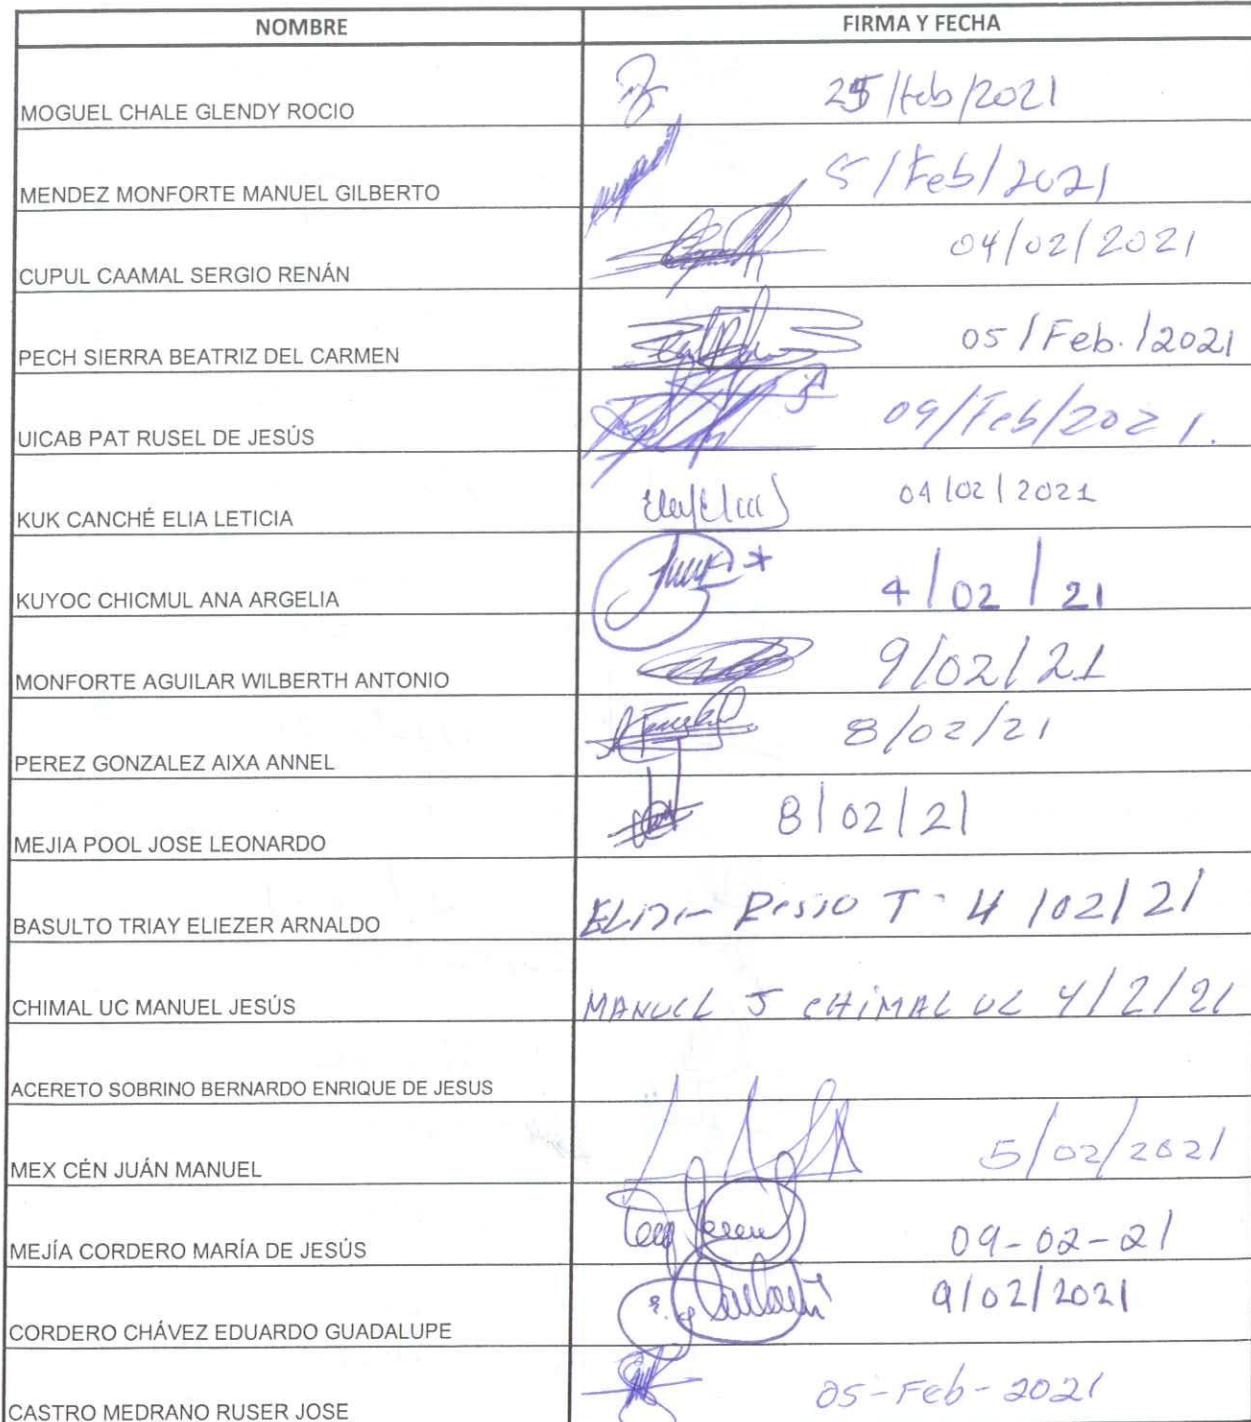 NOMBRE FIRMA Y FECHA
MOGUEL CHALE GLENDY ROCIO /feb/2021
MENDEZ MONFORTE MANUEL GILBERTO 5/Feb/2021
CUPUL CAAMAL SERGIO RENÁN 04/02/2021
PECH SIERRA BEATRIZ DEL CARMEN 05/Feb./2021
UICAB PAT RUSEL DE JESÚS 09/Feb/2021.
KUK CANCHÉ ELIA LETICIA 04/02/2021
KUYOC CHICMUL ANA ARGELIA 4/02/21
MONFORTE AGUILAR WILBERTH ANTONIO 9/02/21
PEREZ GONZALEZ AIXA ANNEL 8/02/21
MEJIA POOL JOSE LEONARDO 8/02/21
BASULTO TRIAY ELIEZER ARNALDO T- 4/02/21
CHIMAL UC MANUEL JESÚS MANUEL J CHIMAL UC 4/2/21
ACERETO SOBRINO BERNARDO ENRIQUE DE JESUS
MEX CÉN JUÁN MANUEL 5/02/2021
MEJÍA CORDERO MARÍA DE JESÚS 09-02-21
CORDERO CHÁVEZ EDUARDO GUADALUPE 9/02/2021
CASTRO MEDRANO RUSER JOSE 05-Feb-2021